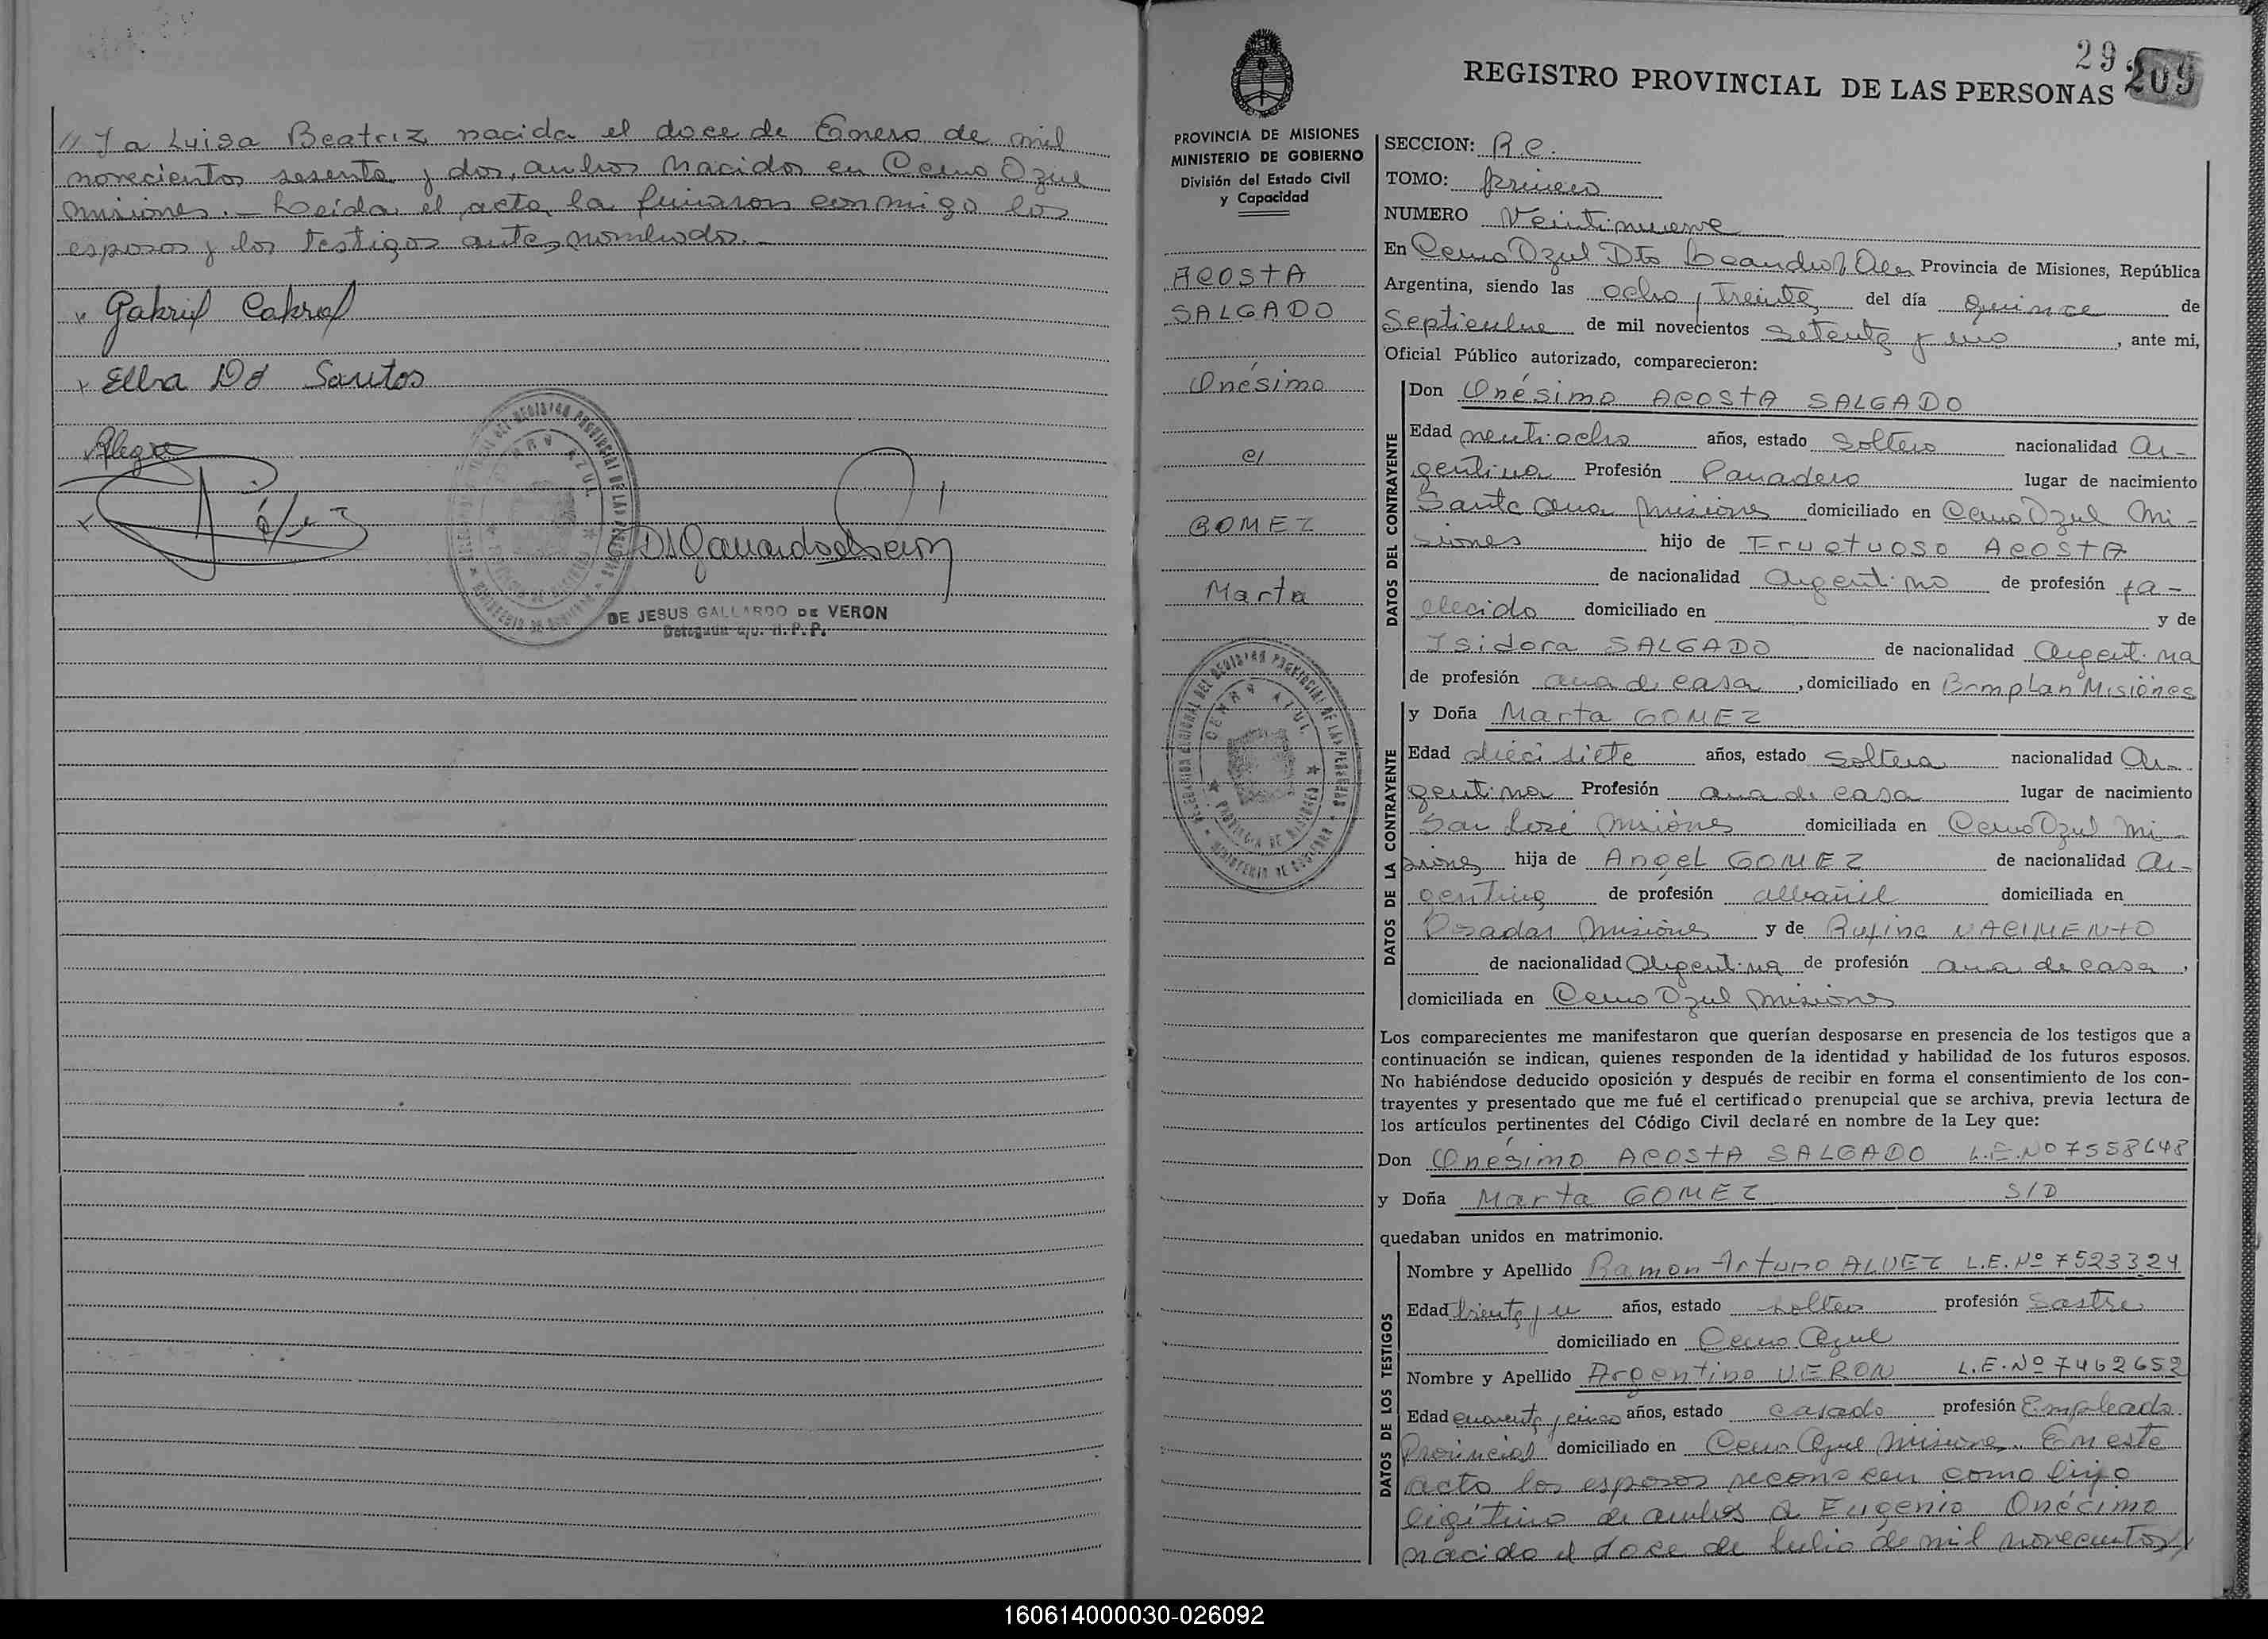 // Y a Luisa Beatriz nacida el doce de Enero de mil
novecientos sesenta y dos, ambos nacidos en Cerro Azul
Misiones. - Leida el acta la firmaron conmigo los
esposos y los testigos antes nombrados. -
Gabriel Cabral
Elba Dos Santos
Alegre
DE JESUS GALLARDO DE VERON
Delegada a/c. R. P. P.
29
209
REGISTRO PROVINCIAL DE LAS PERSONAS
PROVINCIA DE MISIONES
MINISTERIO DE GOBIERNO
División del Estado Civil
y Capacidad
ACOSTA
SALGADO
Onésimo
c/
GOMEZ
Marta
SECCION: R.C.
TOMO: primero
NUMERO Veintinueve
En Cerro Azul Dto Leandro N Alem Provincia de Misiones, República
Argentina, siendo las ocho y treinta del día quince de
Septiembre de mil novecientos setenta y uno, ante mi,
Oficial Público autorizado, comparecieron:
DATOS DEL CONTRAYENTE
Don Onésimo ACOSTA SALGADO
Edad veintiocho años, estado soltero nacionalidad Ar-
gentina Profesión Panadero lugar de nacimiento
Santa Ana Misiones domiciliado en Cerro Azul Mi-
siones hijo de Fructuoso ACOSTA
de nacionalidad Argentino de profesión fa-
llecido domiciliado en y de
Isidora SALGADO de nacionalidad Argentina
de profesión ama de casa, domiciliado en Bomplan Misiones
DATOS DE LA CONTRAYENTE
y Doña Marta GOMEZ
Edad diecisiete años, estado soltera nacionalidad Ar-
gentina Profesión ama de casa lugar de nacimiento
San José Misiones domiciliada en Cerro Azul Mi-
siones hija de Angel GOMEZ de nacionalidad Ar-
gentina de profesión albañil domiciliada en
Posadas Misiones y de Rufina NACIMENTO
de nacionalidad Argentina de profesión ama de casa,
domiciliada en Cerro Azul Misiones
Los comparecientes me manifestaron que querían desposarse en presencia de los testigos que a
continuación se indican, quienes responden de la identidad y habilidad de los futuros esposos.
No habiéndose deducido oposición y después de recibir en forma el consentimiento de los con-
trayentes y presentado que me fué el certificado prenupcial que se archiva, previa lectura de
los artículos pertinentes del Código Civil declaré en nombre de la Ley que:
Don Onésimo ACOSTA SALGADO L.E.Nº 7558648
y Doña Marta GOMEZ S/D
quedaban unidos en matrimonio.
DATOS DE LOS TESTIGOS
Nombre y Apellido Ramon Arturo ALVEZ L.E.Nº 7523324
Edad treinta y un años, estado soltero profesión Sastre
domiciliado en Cerro Azul
Nombre y Apellido Argentino VERON L.E.Nº 7462652
Edad cuarenta y cinco años, estado casado profesión Empleado
Provincial domiciliado en Cerro Azul Misiones. En este
acto los esposos reconocen como hijo
legítimo de ambos a Eugenio Onécimo
nacido el doce de Julio de mil novecientos //
160614000030-026092